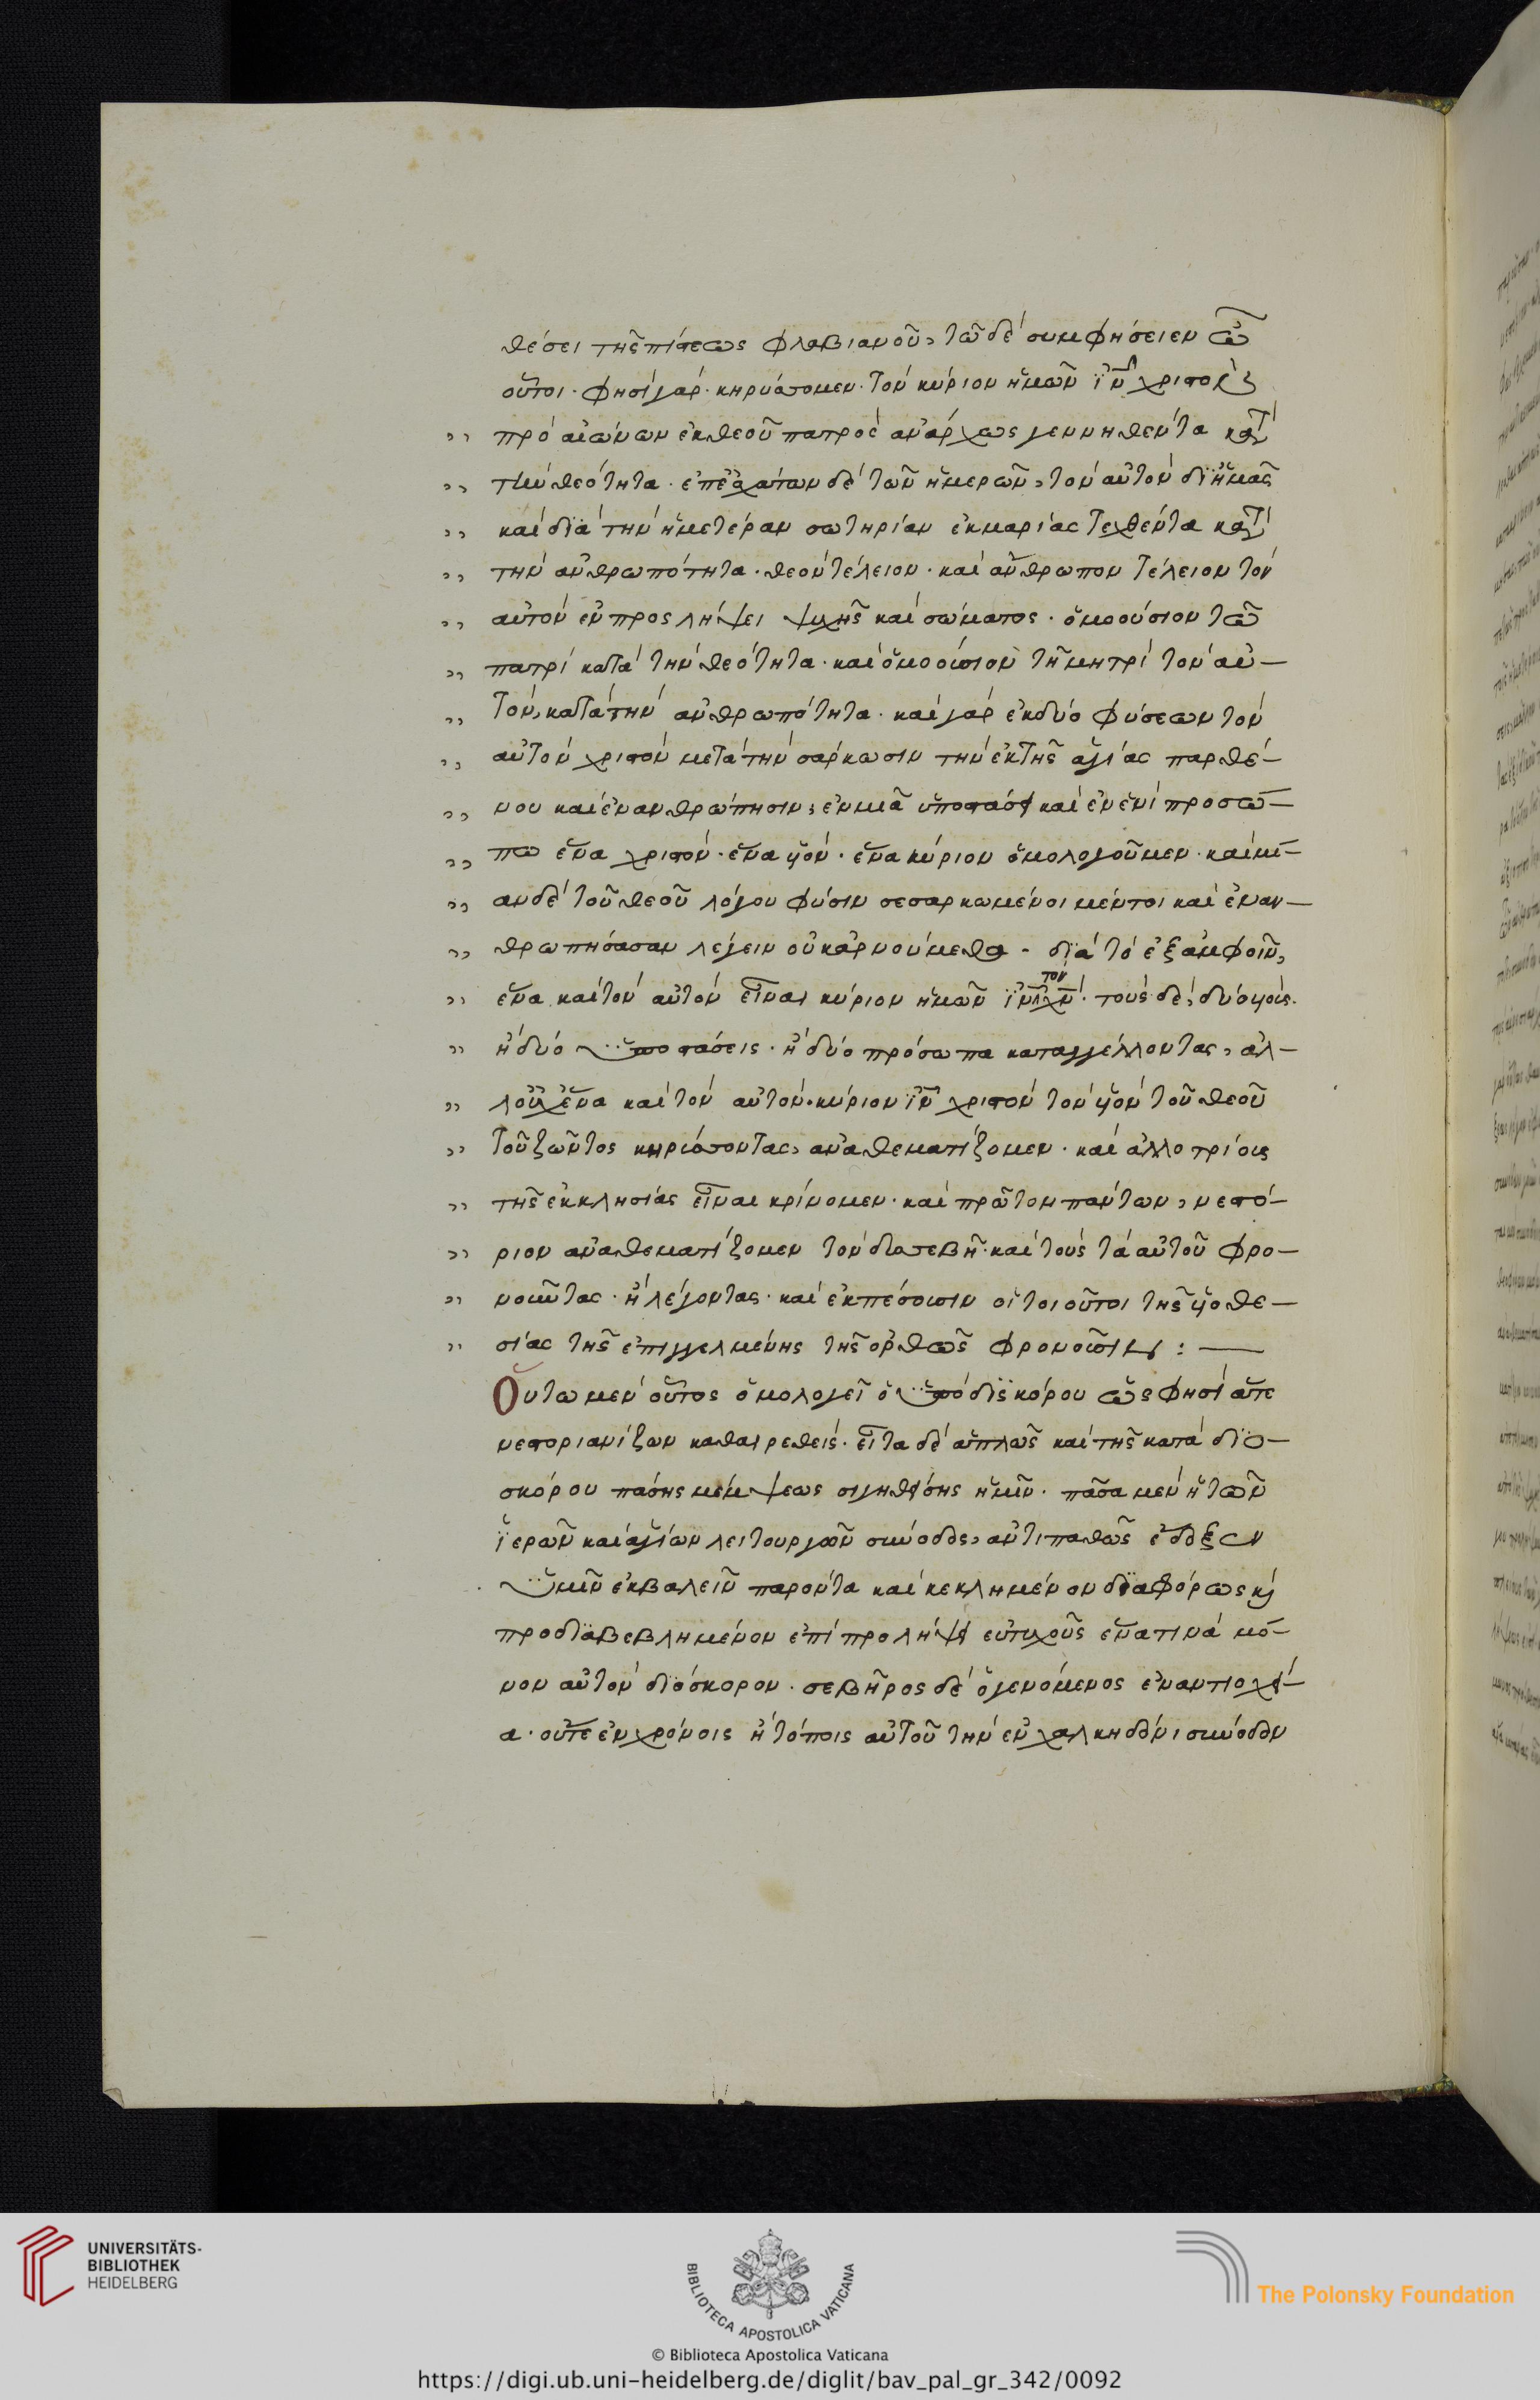 θέσει τῆς πίστεως φλαβιανοῦ, τῶ δὲ συμφήσειεν ὦ
οὗτοι · φησὶ γάρ · κηρύττομεν · τὸν κύριον ἡμῶν ἰν χριστὸν
,, πρὸ αἰώνων ἐκ θεοῦ πατρὸς ἀνάρχως γεννηθέντα κατὰ
,, τὴν θεότητα · ἐπ ἐσχάτων δὲ τῶν ἡμερῶν, τὸν αὐτὸν δι ἡμᾶς
,, καὶ διὰ τὴν ἡμετέραν σωτηρίαν ἐκ μαρίας τεχθέντα κατὰ
,, τὴν ἀνθρωπότητα · θεὸν τέλειον · καὶ ἄνθρωπον τέλειον τὸν
,, αὐτὸν ἐν προσλήψει ψυχῆς καὶ σώματος · ὁμοούσιον τῶ
,, πατρὶ κατὰ τὴν θεότητα · καὶ ὁμοούσιον τῇ μητρὶ τὸν αὐ–
,, τὸν, κατὰ τὴν ἀνθρωπότητα · καὶ γὰρ ἐκ δύο φύσεων τὸν
,, αὐτὸν χριστὸν μετὰ τὴν σάρκωσιν τὴν ἐκ τῆς ἁγίας παρθέ–
,, νου καὶ ἐνανθρώπησιν, ἐν μιᾶ ὑποστάσει καὶ ἐν ἑνὶ προσώ–
,, πω ἕνα χριστόν · ἕνα υἱόν · ἕνα κύριον ὁμολογοῦμεν · καὶ μί–
,, αν δὲ τοῦ θεοῦ λόγου φύσιν σεσαρκωμένοι μέντοι καὶ ἐναν–
,, θρωπήσασαν λέγειν οὐκ ἀρνούμεθα · διὰ τὸ ἐξ ἀμφοῖν,
,, ἕνα καὶ τὸν αὐτὸν εἶναι κύριον ἡμῶν ἰν τὸν χν · τοὺς δὲ, δύο υἱούς ·
,, ἢ δύο ὑποστάσεις · ἢ δύο πρόσωπα καταγγέλλοντας, ἀλ–
,, λ οὐχ ἕνα καὶ τὸν αὐτὸν · κύριον ἰν χριστὸν τὸν υἱὸν τοῦ θεοῦ
,, τοῦ ζῶντος κηρύττοντας, ἀναθεματίζομεν · καὶ ἀλλοτρίους
,, τῆς ἐκκλησίας εἶναι κρίνομεν · καὶ πρῶτον πάντων, νεστό–
,, ριον ἀναθεματίζομεν τὸν δυσσεβῆ · καὶ τοὺς τὰ αὐτοῦ φρο–
,, νοῦντας · ἢ λέγοντας · καὶ ἐκπέσοισιν οἱ τοιοῦτοι τῆς υἱοθε–
,, σίας τῆς ἐπηγγελμένης τῆς ὀρθῶς φρονοῦσιν : —
Οὕτω μὲν οὗτος ὁμολογεῖ ὁ ὑπὸ δισκόρου ὥς φησὶ ἅτε
νεστοριανίζων καθαιρεθείς · εἶτα δὲ ἁπλῶς καὶ τῆς κατὰ διο–
σκόρου πάσης μέμψεως σιγηθείσης ἡμῖν · πᾶσα μὲν ἡ τῶν
ἱερῶν καὶ ἁγίων λειτουργῶν σύνοδος, ἀντιπαθῶς ἔδοξεν
ὑμῖν ἐκβαλεῖν παρόντα καὶ κεκλημένον διαφόρως κὶ
προδιαβεβλημένον ἐπὶ προλήψει εὐτυχοῦς ἕνα τινὰ μό–
νον αὐτὸν διόσκορον · σεβῆρος δὲ ὁ γενόμενος ἐν ἀντιοχεί–
α · οὔτε ἐν χρόνοις ἢ τόποις αὐτοῦ τὴν ἐν χαλκηδόνι σύνοδον
UNIVERSITÄTS-
BIBLIOTHEK
HEIDELBERG
BIBLIOTECA APOSTOLICA VATICANA
The Polonsky Foundation
© Biblioteca Apostolica Vaticana
https://digi.ub.uni-heidelberg.de/diglit/bav_pal_gr_342/0092